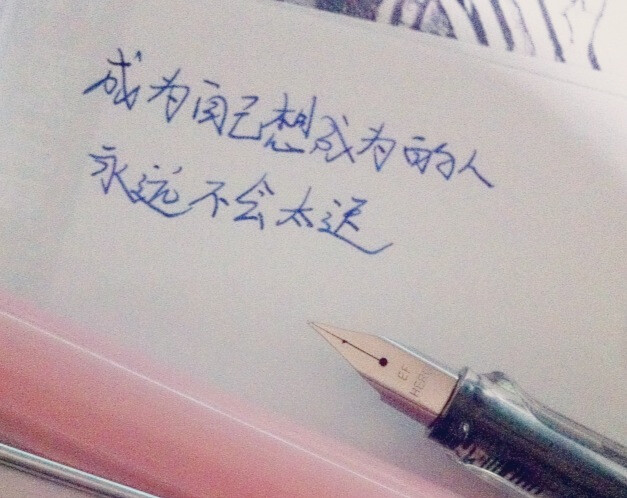 成为自己想成为的人
永远不会太迟
EF
HERO